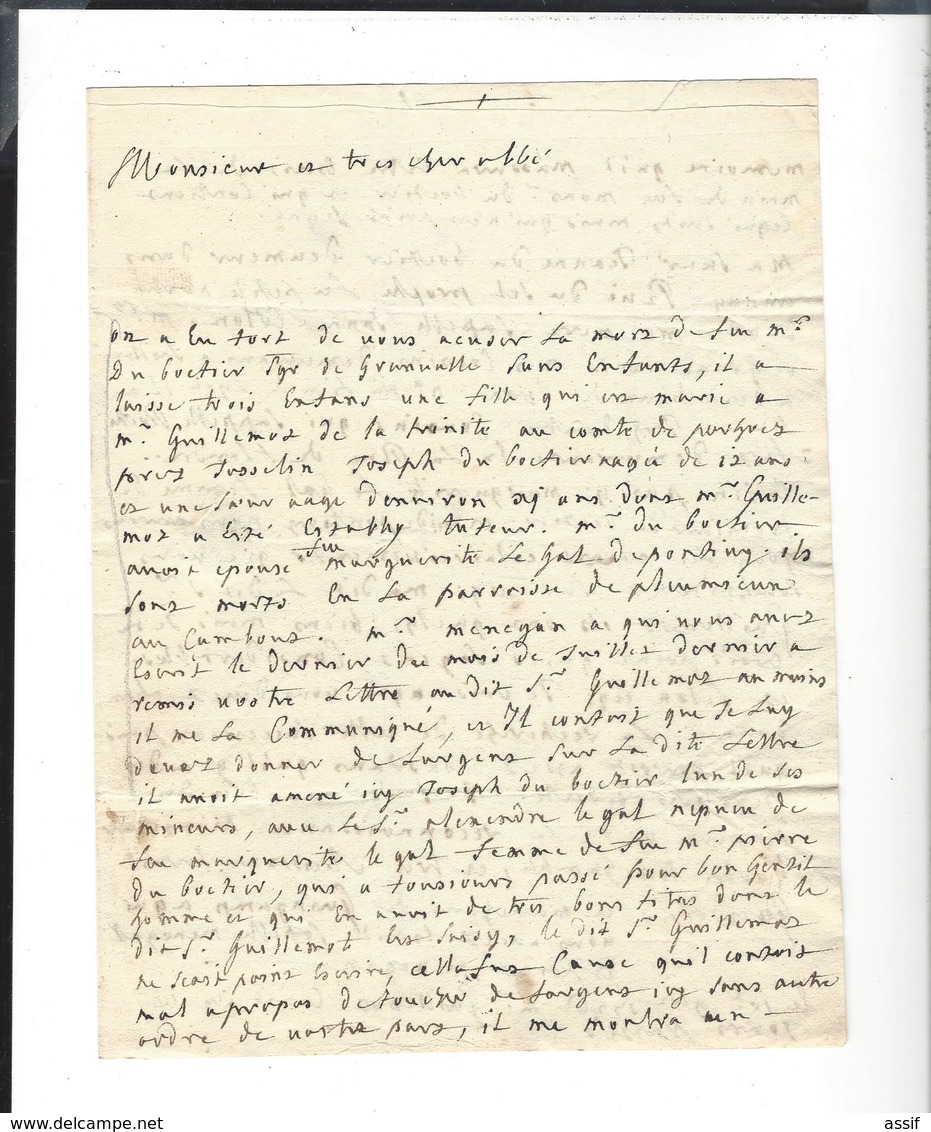 Monsieur et tres cher abbé
on a Eu tort de vous acuser La mort de feu mr
Du boctier Sgr de Granvalle Sans Enfants, il a
laissé trois Enfans une fille qui est marié a
mr Guillemot de la trinite au comté de porhoet
prez Josselin Joseph du boctier aagé de 12 ans
et une Sœur aage Denviron xj ans Dont mr Guille-
mot a Esté Estably tuteur. mr du boctier
avoit epousé feu marguerite Le Gal de pontivy. ils
sont morts En La parroisse de plumieuc
au Cambout. mr menegan a qui vous avez
Escrit le Dernier Du mois de Juillet dernier a
remis vostre Lettre au dit Sr Guillemot au moins
il me La Communiqué, et Il contoit que Je Luy
Devois donner de Largent Sur La dite Lettre
il avoit amené icy Joseph du boctier lun de ses
mineurs, avec le Sr alexendre le gal nepveu de
feu marguerite le gal femme de feu mr pierre
Du boctier, qui a tousiours passé pour bon Gentil
homme et qui En avoit de tres bons titres dont le
dit Sr Guillemot Est Saisy, le dit Sr Guillemot
ne scait point Escrire, cella fut Cause quil contoit
mal apropos De toucher de Largent icy sans autre
ordre de vostre part, il me montra un -
assif